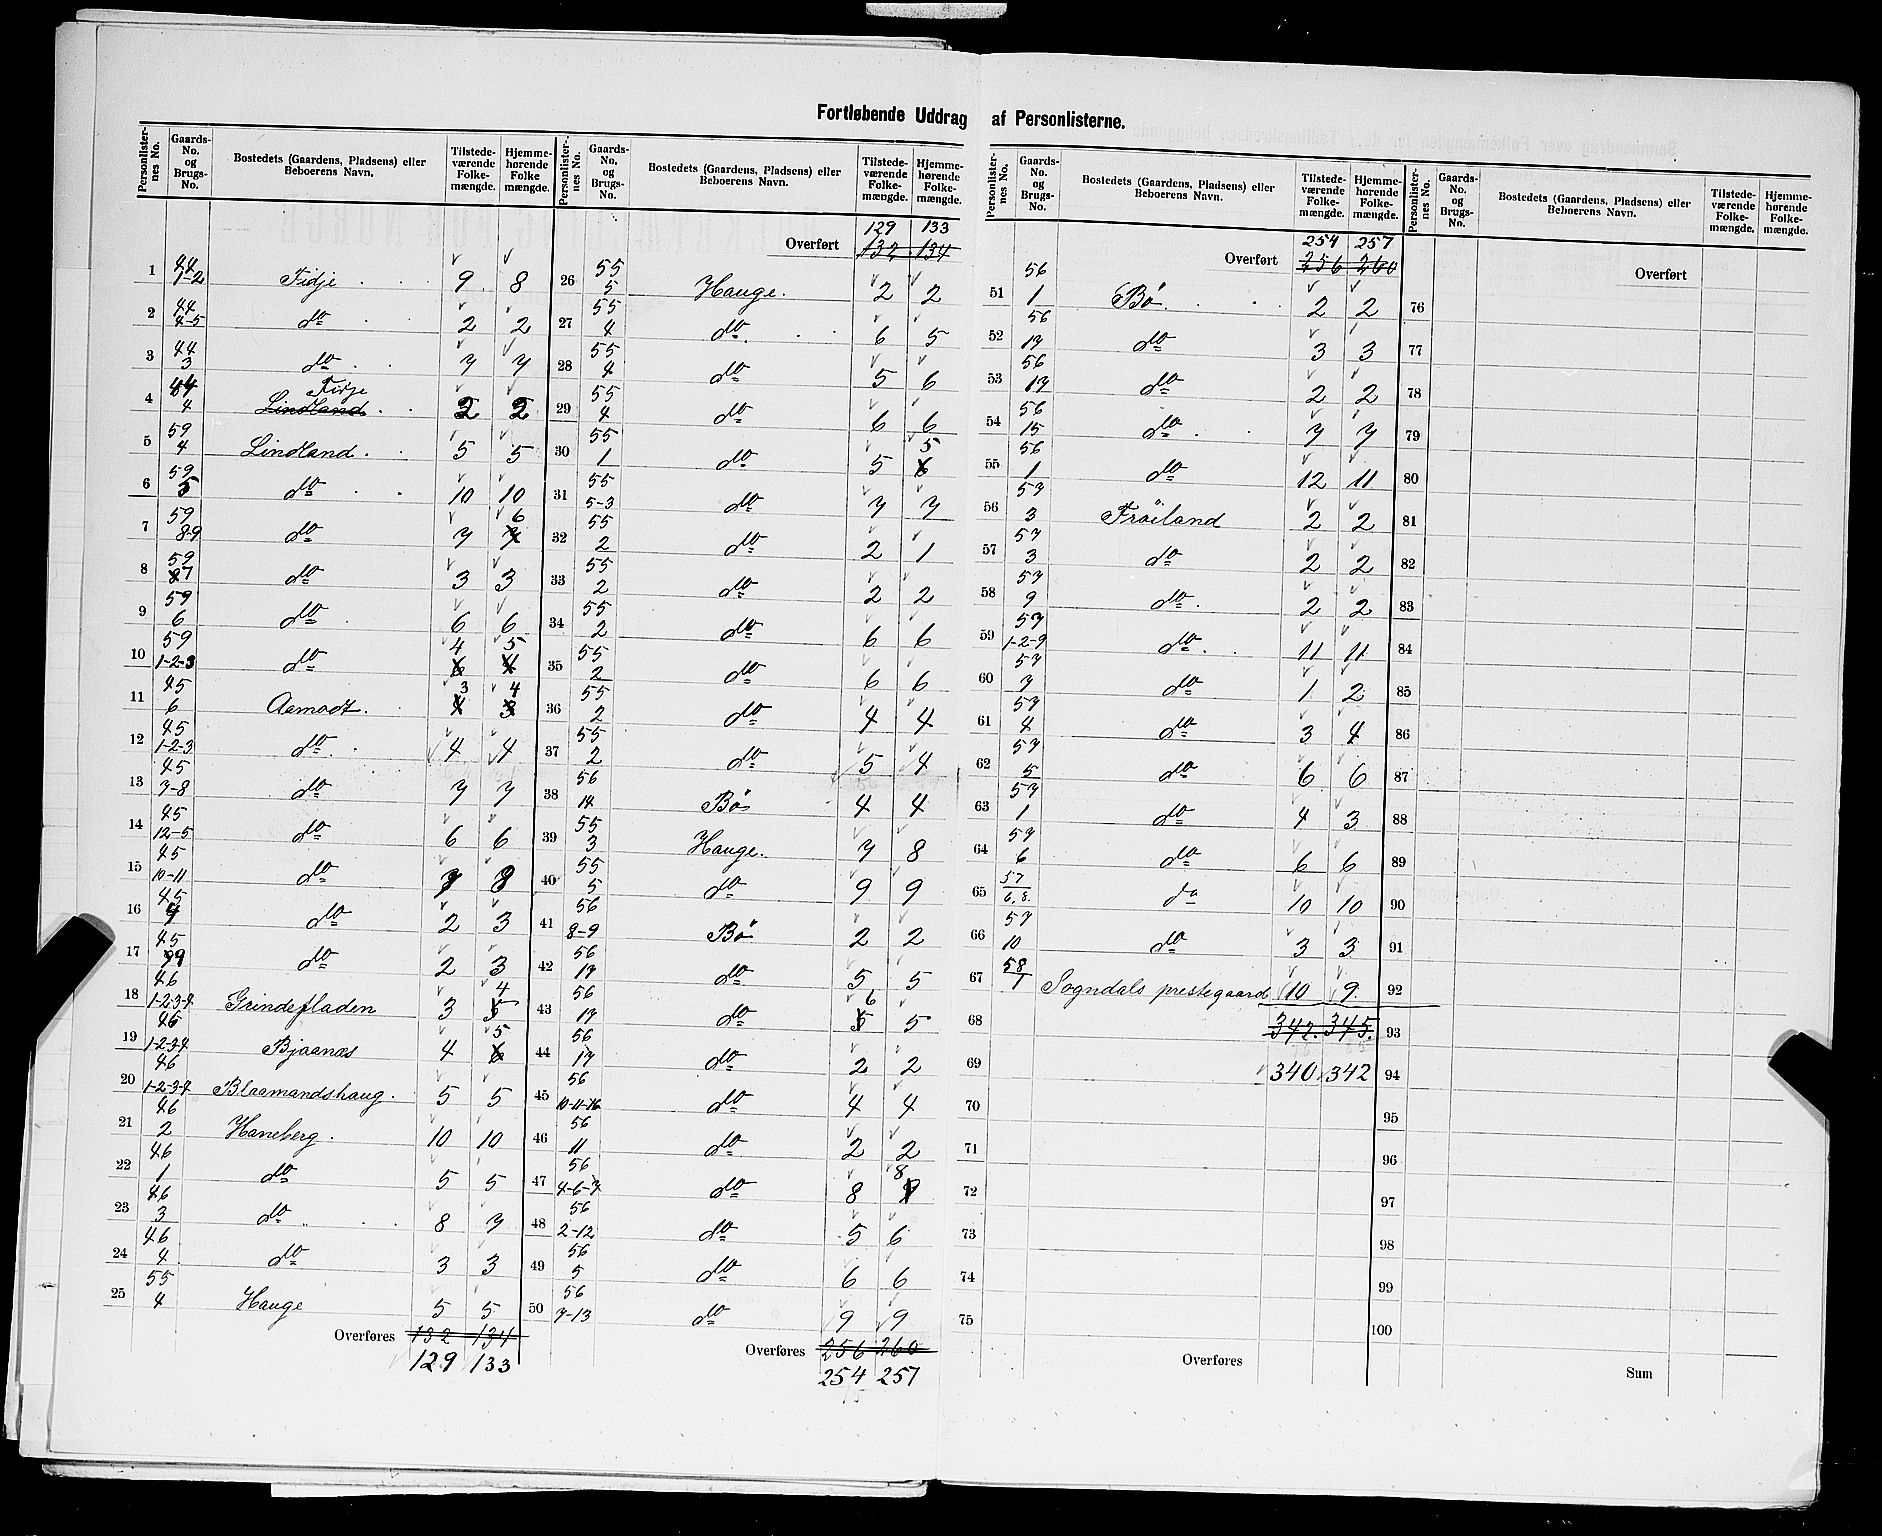 Fortløbende Uddrag af Personlisterne.
Personlister-nes No. | Gaards-No. og Brugs-No. | Bostedets (Gaardens, Pladsens) eller Beboerens Navn. | Tilstede-værende Folke-mængde. | Hjemme-hørende Folke mængde.
1 | 44 1-2 | Fidje | 9 | 8
2 | 44 4-5 | do | 2 | 2
3 | 44 3 | do | 7 | 7
4 | 44 4 | Lindland Fidje | 2 | 2
5 | 59 4 | Lindland | 5 | 5
6 | 59 5 | do | 10 | 10
7 | 59 8-9 | do | 7 | 7 6
8 | 59 7 | do | 3 | 3
9 | 59 6 | do | 6 | 6
10 | 59 1-2-3 | do | 6 4 | 4 5
11 | 45 6 | Aamodt | 4 3 | 3 4
12 | 45 1-2-3 | do | 4 | 4
13 | 45 7-8 | do | 7 | 7
14 | 45 12-5 | do | 6 | 6
15 | 45 10-11 | do | 7 | 8
16 | 45 4 | do | 2 | 3
17 | 45 9 | do | 2 | 3
18 | 46 1-2-3-4 | Grindefladen | 3 | 5 4
19 | 46 1-2-3-4 | Bjaanæs | 4 | 6 5
20 | 46 1-2-3-4 | Blaamandshaug. | 5 | 5
21 | 46 2 | Haneberg. | 10 | 10
22 | 46 1 | do | 5 | 5
23 | 46 3 | do | 8 | 7
24 | 46 4 | do | 3 | 3
25 | 55 4 | Hauge | 5 | 5
Overføres 132 134
129 133
Personlister-nes No. | Gaards-No. og Brugs-No. | Bostedets (Gaardens, Pladsens) eller Beboerens Navn. | Tilstede-værende Folke-mængde. | Hjemme-hørende Folke-mængde.
129 133
Overført 132 134
26 | 55 5 | Hauge. | 2 | 2
27 | 55 4 | do | 6 | 5
28 | 55 4 | do | 5 | 6
29 | 55 4 | do | 6 | 6
30 | 55 1 | do | 5 | 6 5
31 | 55 5-3 | do | 7 | 7
32 | 55 2 | do | 2 | 1
33 | 55 2 | do | 2 | 2
34 | 55 2 | do | 6 | 6
35 | 55 2 | do | 6 | 6
36 | 55 2 | do | 4 | 4
37 | 55 2 | do | 5 | 4
38 | 56 14 | Bø | 4 | 4
39 | 55 3 | Hauge. | 7 | 8
40 | 55 5 | do | 9 | 9
41 | 56 8-9 | Bø | 2 | 2
42 | 56 17 | do | 5 | 5
43 | 56 17 | do | 5 6 | 5
44 | 56 17 | do | 2 | 2
45 | 56 10-11-16 | do | 4 | 4
46 | 56 11 | do | 2 | 2
47 | 56 4-6-7 | do | 8 | 8
48 | 56 2-12 | do | 5 | 6
49 | 56 5 | do | 6 | 6
50 | 56 7-13 | do | 9 | 9
Overføres 256 260
254 257
Personlister-nes No. | Gaards-No. og Brugs-No. | Bostedets (Gaardens, Pladsens) eller Beboerens Navn. | Tilstede-værende Folke-mængde. | Hjemme-hørende Folke-mængde.
254 257
Overført 256 260
51 | 56 1 | Bø | 2 | 2
52 | 56 17 | do | 3 | 3
53 | 56 17 | do | 2 | 2
54 | 56 15 | do | 7 | 7
55 | 56 1 | do | 12 | 11
56 | 57 3 | Frøiland | 2 | 2
57 | 57 3 | do | 2 | 2
58 | 57 9 | do | 2 | 2
59 | 57 1-2-9 | do | 11 | 11
60 | 57 7 | do | 1 | 2
61 | 57 4 | do | 3 | 4
62 | 57 5 | do | 6 | 6
63 | 57 1 | do | 4 | 3
64 | 57 6 | do | 6 | 6
65 | 57 6,8. | do | 10 | 10
66 | 57 10 | do | 3 | 3
67 | 58 1 | Sogndals prestegaard | 10 | 9
68 | 342. 345.
69 | 340 342
70
71
72
73
74
75
Overføres
Personlister-nes No. | Gaards-No. og Brugs-No. | Bostedets (Gaardens, Pladsens) eller Beboerens Navn. | Tilstede-værende Folke-mængde. | Hjemme-hørende Folke-mængde.
Overført
76
77
78
79
80
81
82
83
84
85
86
87
88
89
90
91
92
93
94
95
96
97
98
99
100
Sum